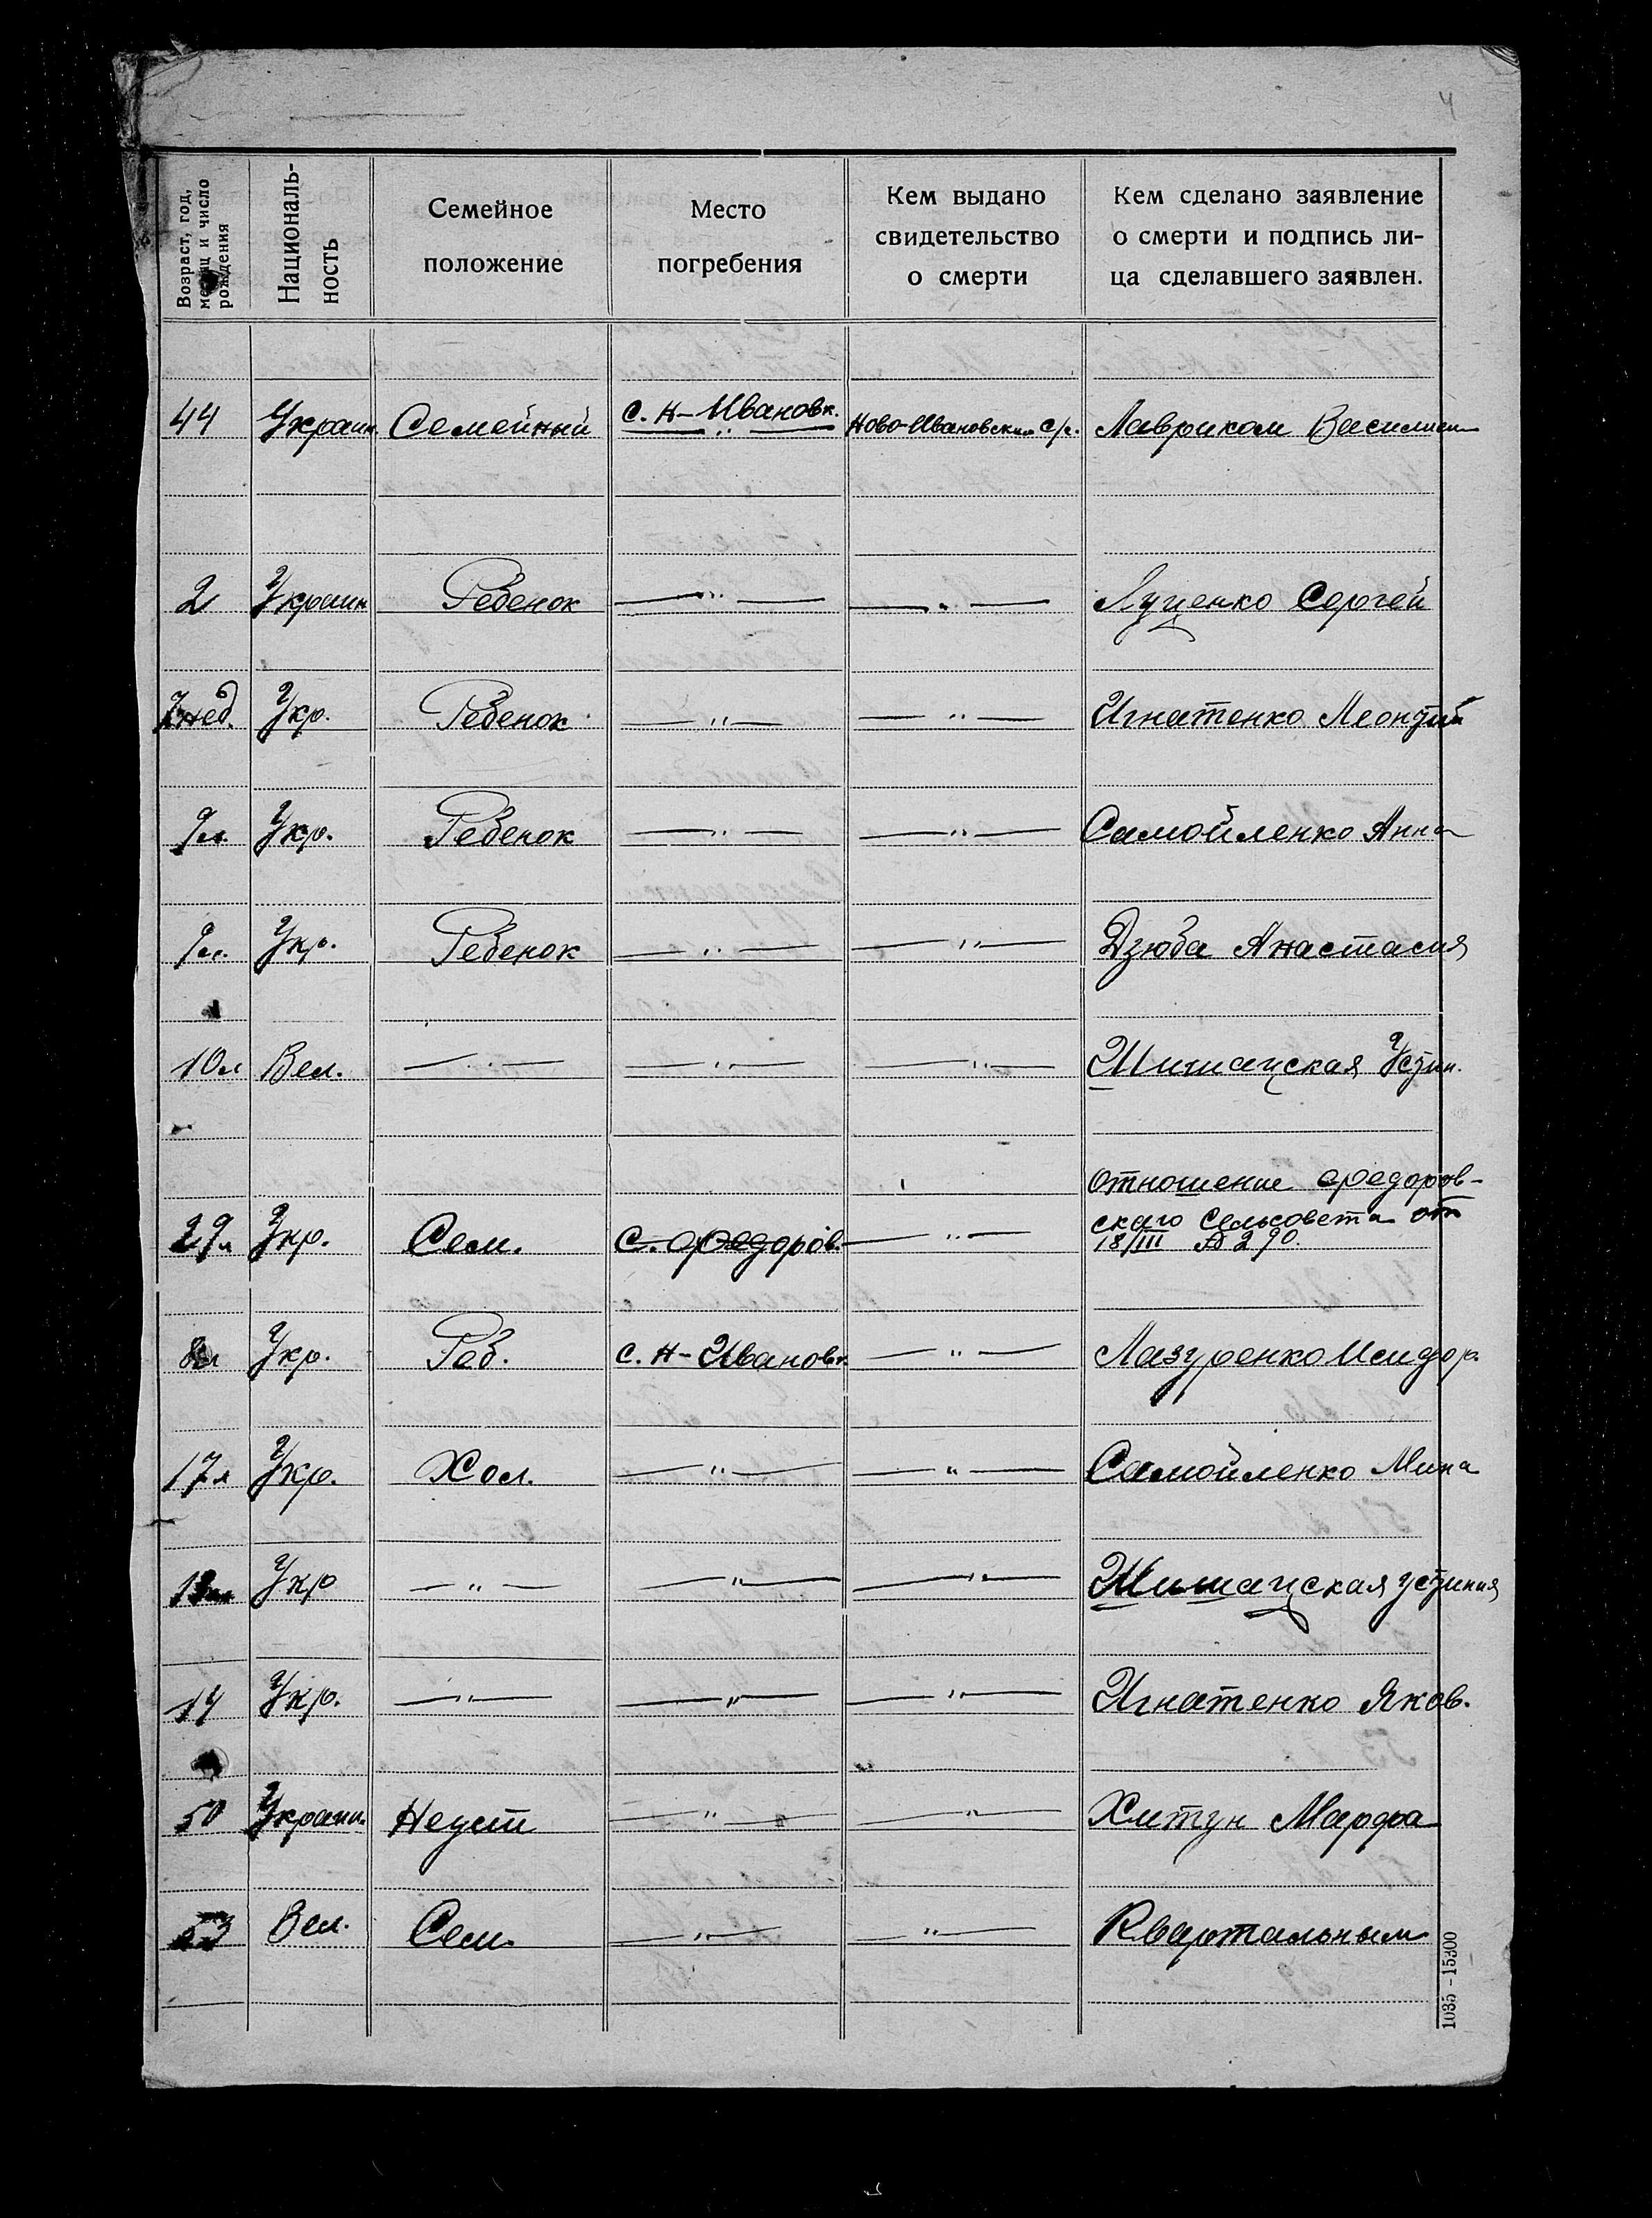 4
Возраст, год, месяц и число рождения
Националь-
ность
Семейное
положение
Место
погребения
Кем выдано
свидетельство
о смерти
Кем сделано заявление
о смерти и подпись ли-
ца сделавшего заявлен.
44 Украин. Семейный с. Н-Ивановк. Ново-Ивановским с/с. Лавриком Василием
2 Украин Ребенок —"— —"— Луценко Сергей
нед. Укр. Ребенок —"— —"— Игнатенко Леонтий
9м Укр. Ребенок —"— —"— Самойленко Анна
9м. Укр. Ребенок —"— —"— Дзюба Анастасия
10м Вел. —"— —"— —"— Шишацская Устин.
Отношение Федоров-
скаго Сельсовета от
29л Укр. Сем. С. Федоров. —"— 18/III № 290.
8м Укр. Реб. с. Н-Ивановк. —"— Лазуренко Исидор.
17л Укр. Хол. —"— —"— Самойленко Мина
Укр —"— —"— —"— Шишацская Устиния
14 Укр. —"— —"— —"— Игнатенко Яков.
50 Украин. —"— —"— Хмтун Марфа
53 Вел. Сем. —"— —"— Квартальным
1035 - 15300